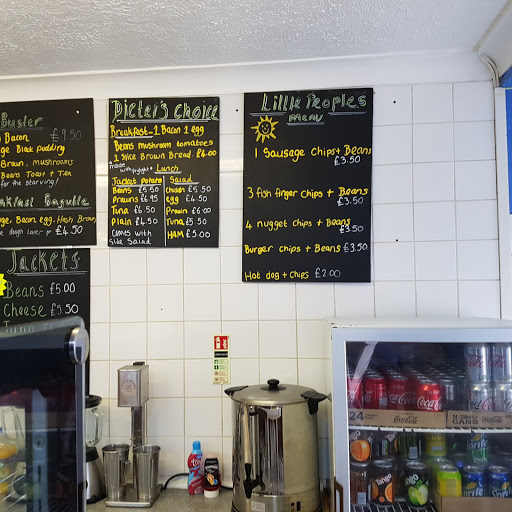 Buster
Bacon £9.50
ge Black pudding
Brown, mushrooms
Beans Toast + Tea
for the starving!
Breakfast Baguette
ge, Bacon, egg, Hash Brown
£4.50
Jackets
Beans £5.00
Cheese £5.50
Dieter's Choice
Breakfast - 1 Bacon 1 egg
Beans mushroom tomatoes
1 slice Brown Bread £4.00
Lunch
Jacket Potato Salad
Beans £5.50 chicken £5.50
prawns £6.95 egg £4.50
Tuna £6.50 Prawn £6.00
Plain £4.50 Tuna £5.50
comes with HAM £5.00
side salad
Little Peoples
menu
1 Sausage Chips + Beans
£3.50
3 fish finger chips + Beans
£3.50
4 nugget chips + Beans
£3.50
Burger chips + Beans £3.50
Hot dog + Chips £2.00
24
CANS
Coca-Cola
Tango